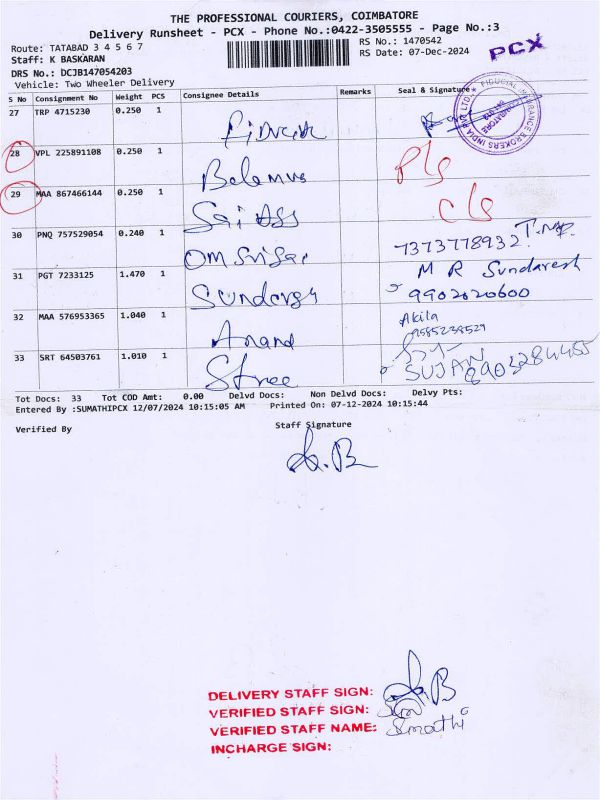 THE PROFESSIONAL COURIERS, COIMBATORE
Delivery Runsheet - PCX - Phone No.:0422-3505555 - Page No.:3
Route: TATABAD 3 4 5 6 7
RS No.: 1470542
PCX
Staff: K BASKARAN
RS Date: 07-Dec-2024
DRS No.: DCJB147054203
Vehicle: Two Wheeler Delivery
S No Consignment No Weight PCS Consignee Details Remarks Seal & Signature
27 TRP 4715230 0.250 1
28 VPL 225891108 0.250 1 Balamus P/s
29 MAA 867466144 0.250 1 Sai Ass c/s
30 PNQ 757529054 0.240 1 Om Sri Sai 7373778932
31 PGT 7233125 1.470 1 Sundaresh M R Sundaresh
9902020600
32 MAA 576953365 1.040 1 Anand Akila
9585234529
33 SRT 64503761 1.010 1 Stree SUJAN 8903284455
Tot Docs: 33 Tot COD Amt: 0.00 Delvd Docs: Non Delvd Docs: Delvy Pts:
Entered By :SUMATHIPCX 12/07/2024 10:15:05 AM Printed On: 07-12-2024 10:15:44
Verified By
Staff Signature
DELIVERY STAFF SIGN:
VERIFIED STAFF SIGN:
VERIFIED STAFF NAME: Sumathi
INCHARGE SIGN: